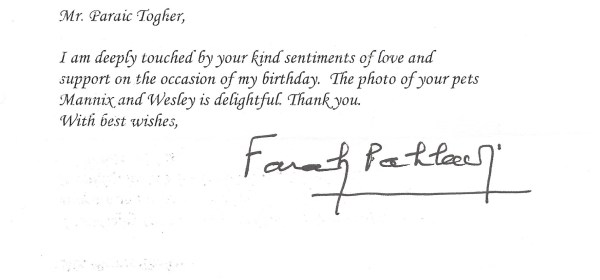 Mr. Paraic Togher,
I am deeply touched by your kind sentiments of love and
support on the occasion of my birthday. The photo of your pets
Mannix and Wesley is delightful. Thank you.
With best wishes,
Farah Pahlavi